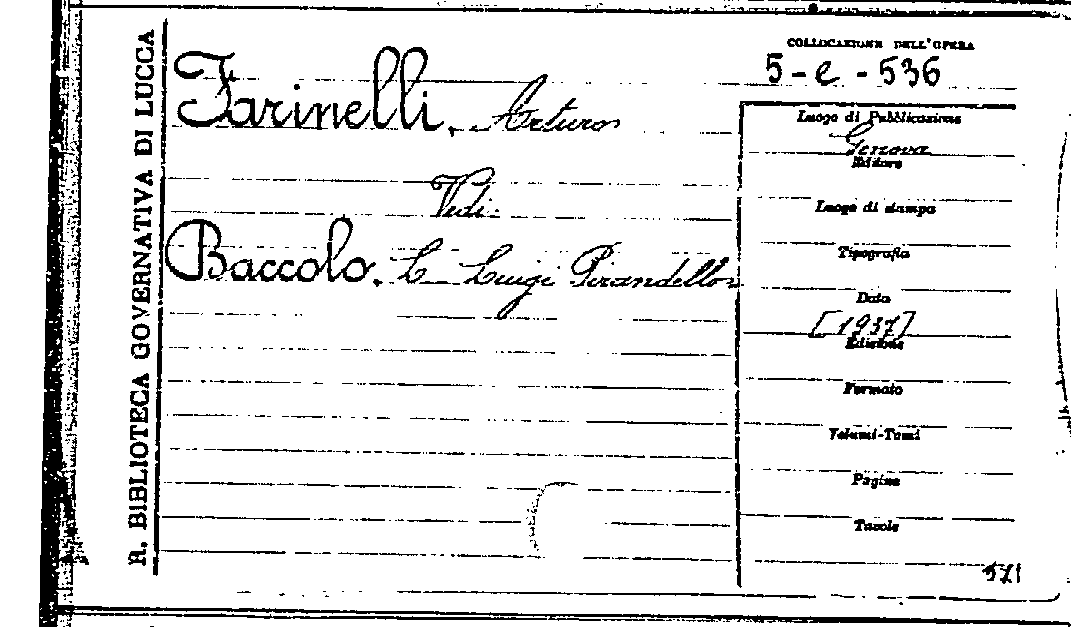 R. BIBLIOTECA GOVERNATIVA DI LUCCA
COLLOCAZIONE DELL'OPERA
5-e-536
Farinelli, Arturo
Vedi:
Baccolo, L. Luigi Pirandello
Luogo di Pubblicazione
Genova
Editore
Luogo di stampa
Tipografia
Data
[1937]
Edizione
Formato
Volumi-Tomi
Pagine
Tavole
571